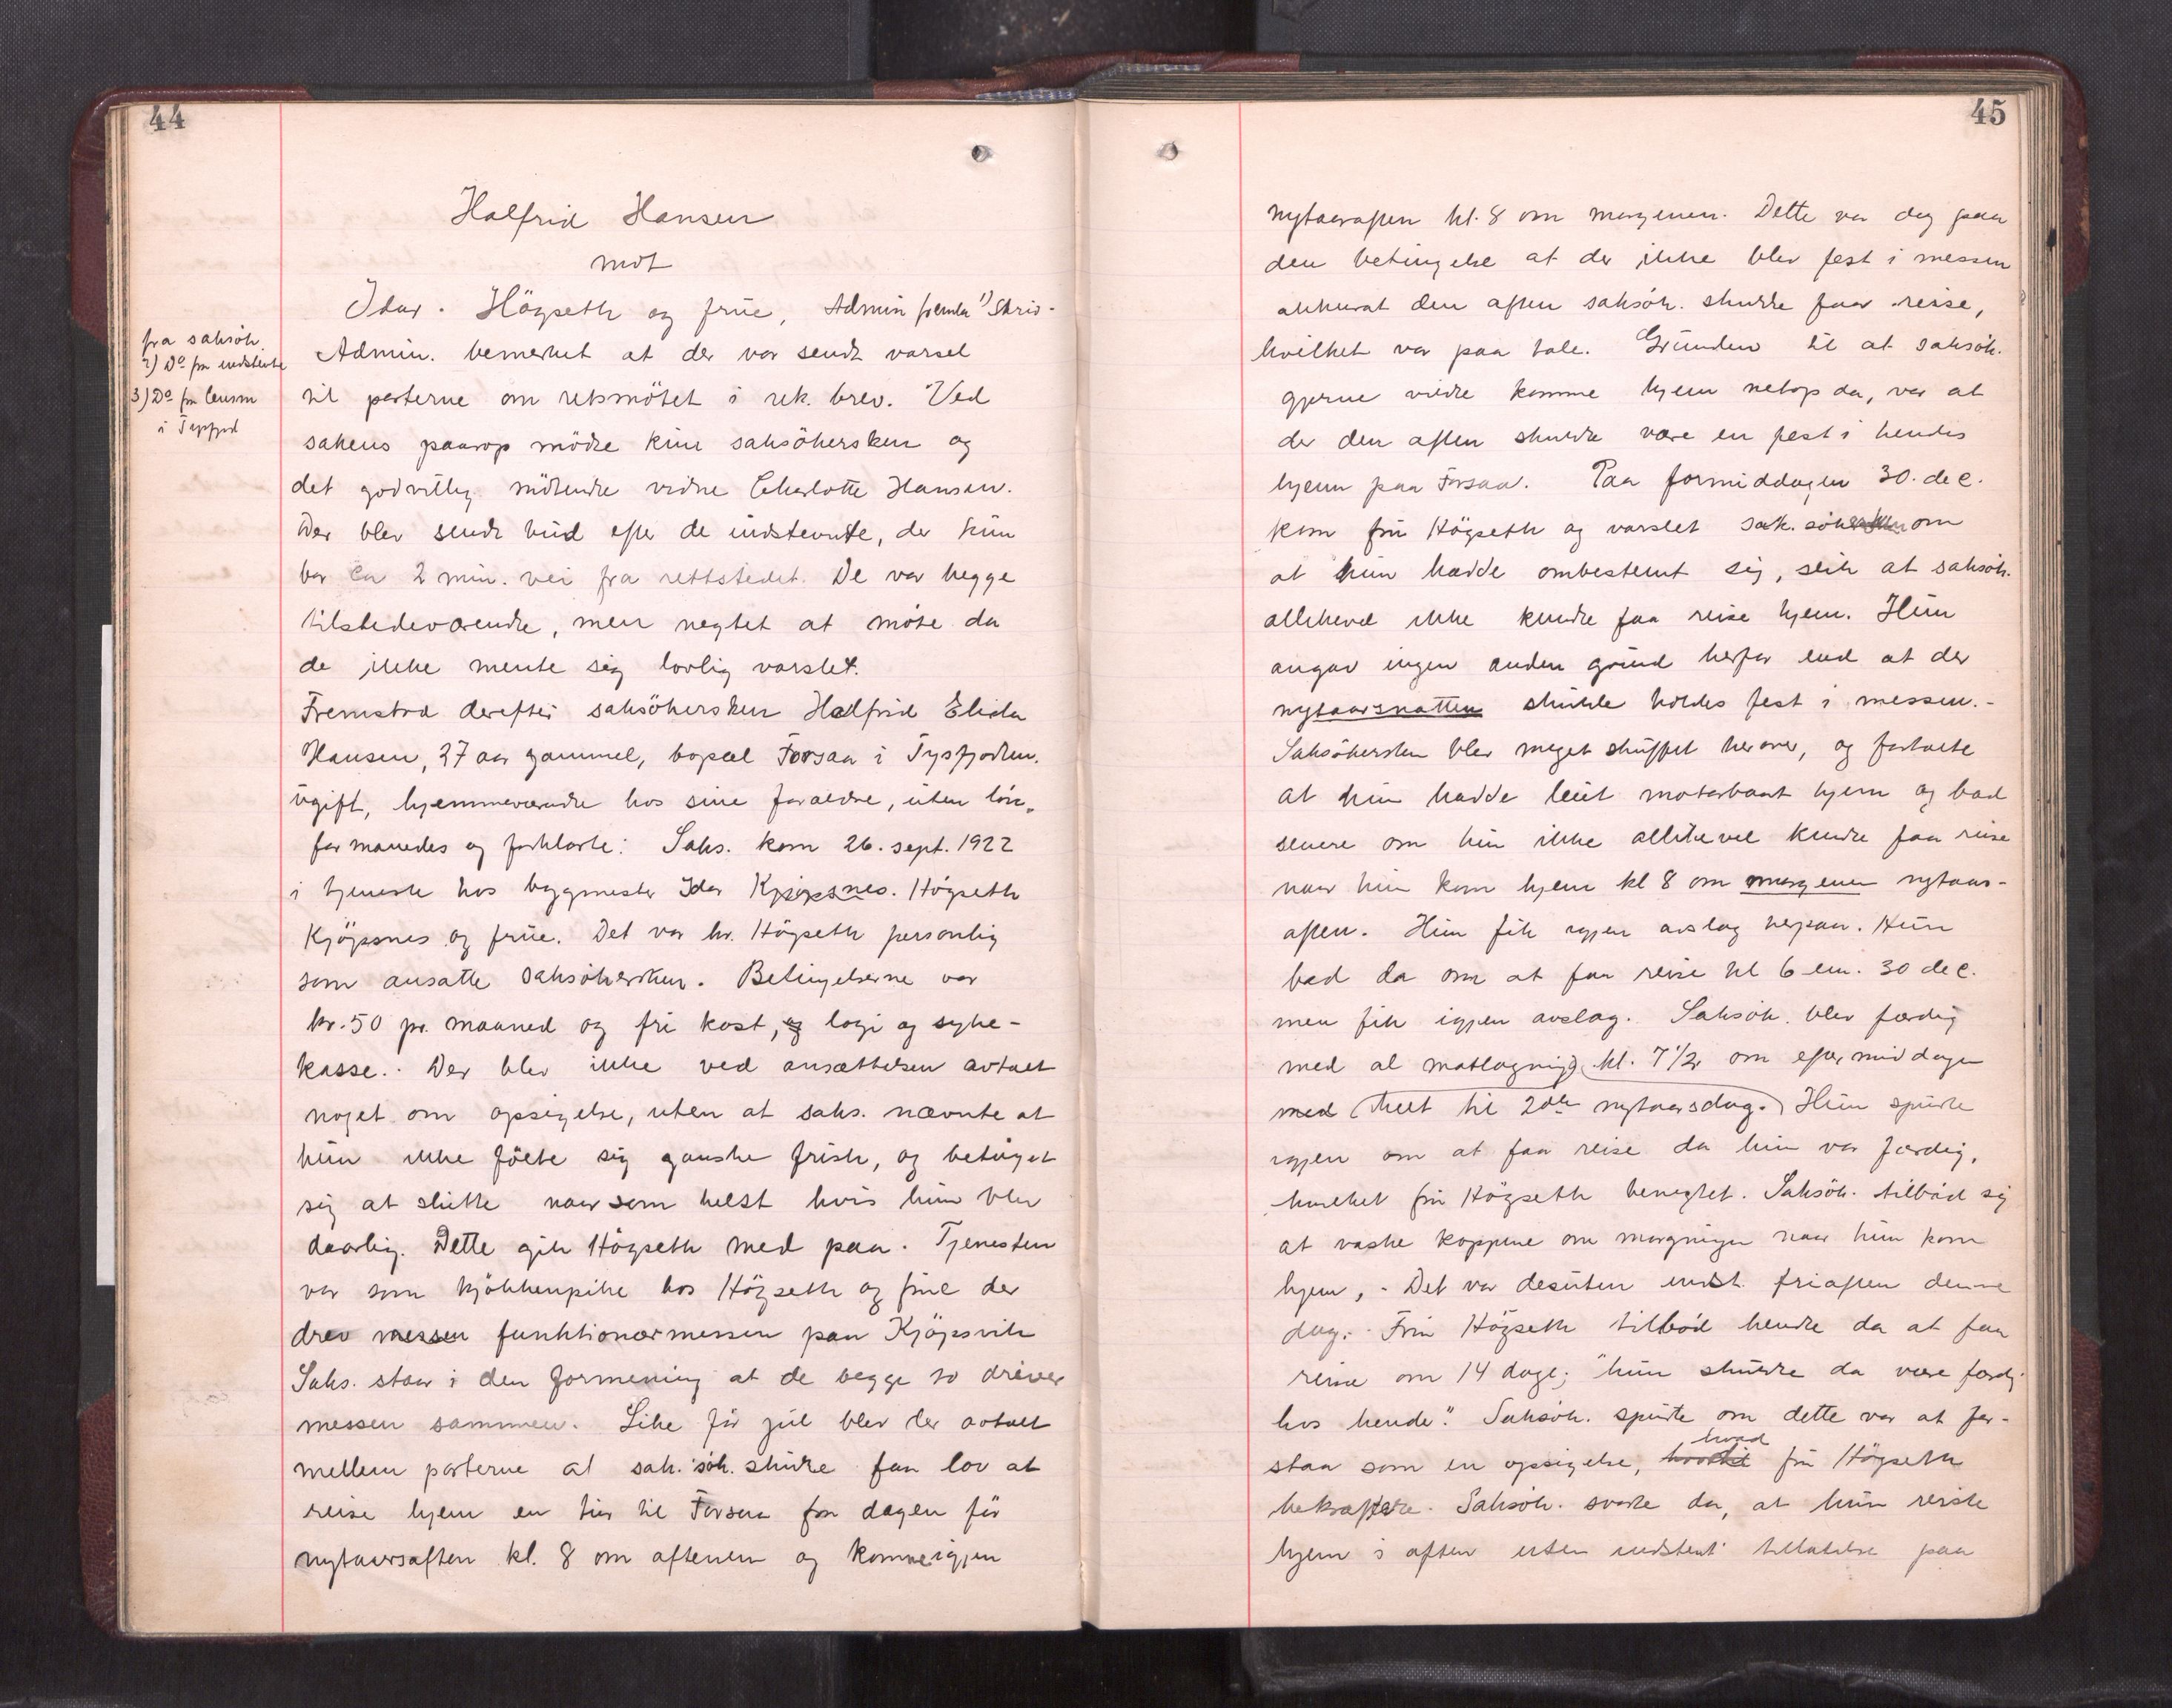 44
Halfrid Hansen
mot
Idar. Högseth og frue, Admin fremla 1) Skriv-
fra saksök.
2) Do fra indstevnte
3) Do fra lensm
i Tysfjord
Admin. bemerket at der var sendt varsel
til parterne om retsmötet i rek. brev. Ved
sakens paarop mödte kun saksökersken og
det godvillig mötende vidne Charlotte Hansen.
Der blev sendt bud efter de indstevnte, der kun
bor ca 2 min. vei fra rettstedet. De var begge
tilstedeværende, men negtet at möte da
de ikke mente sig lovlig varslet.
Fremstod derefter saksökersken Halfrid Elida
Hansen, 27 aar gammel, bopæl Forsaa i Tysfjorden.
ugift, hjemmeværende hos sine foraeldre, uten lön,
formanedes og forklarte: Saks. kom 26. sept. 1922
i tjeneste hos bygmester Idar Kjöpsnes. Högseth
Kjöpsnes og frue. Det var hr. Högseth personlig
som ansatte saksökersken. Betingelserne var
kr. 50 pr. maaned og fri kost, og logi og syke-
kasse. Der blev ikke ved ansættelsen avtalt
noget om opsigelse, uten at saks. nævnte at
hun ikke fölte sig ganske frisk, og betinget
sig at slutte naar som helst hvis hun blev
daarlig. Dette gik Högseth med paa. Tjenesten
var som kjökkenpike hos Högseth og frue der
drev messen funktionærmessen paa Kjöpsvik
Saks. staar i den formening at de begge to driver
messen sammen. Like för jul blev der avtalt
mellem parterne at sak. sök. skulde faa lov at
reise hjem en tur til Forsaa fra dagen för
nytaarsaften kl. 8 om aftenen og komme igjen
45
nytaarsaften kl. 8 om morgenen. Dette var dog paa
den betingelse at der ikke blev fest i messen
akkurat den aften saksök. skulde faar reise,
hvilket var paa tale. Grunden til at saksök.
gjerne vilde komme hjem netop da, var at
der den aften skulde være en fest i hendes
hjem paa Forsaa. Paa formiddagen 30. dec.
kom fru Högseth og varslet sak. sökersken om
at hun hadde ombestemt sig, slik at saksök.
allikevel ikke kunde faa reise hjem. Hun
angav ingen anden grund herfor end at der
nytaarsnatten skulde holdes fest i messen.-
Saksökersken blev meget skuffet herover, og fortalte
at hun hadde leiet motorbaat hjem og bad
senere om hun ikke allikevel kunde faa reise
naar hun kom hjem kl 8 om morgenen nytaars-
aften. Hun fik igjen avslag herpaa. Hun
bad da om at faa reise kl 6 em. 30 dec.
men fik igjen avslag. Saksök. blev færdig
med al matlagning kl. 7 1/2 om eftermiddagen
med (helt til 2den nytaarsdag.) Hun spurte
igjen om at faa reise da hun var færdig,
hvilket fru Högseth benegtet. Saksök. tilböd sig
at vaske koppene om morgningen naar hun kom
hjem, - Det var desuten indst. friaften denne
dag. Fru Högseth tilböd hende da at faa
reise om 14 dage; "hun skulde da være færdig
hos hende". Saksök. spurte om dette var at for-
staa som en opsigelse, hvad fru Högseth
bekræftede. Saksök. svarte da, at hun reiste
hjem i aften uten indstevnt. tillatelse paa